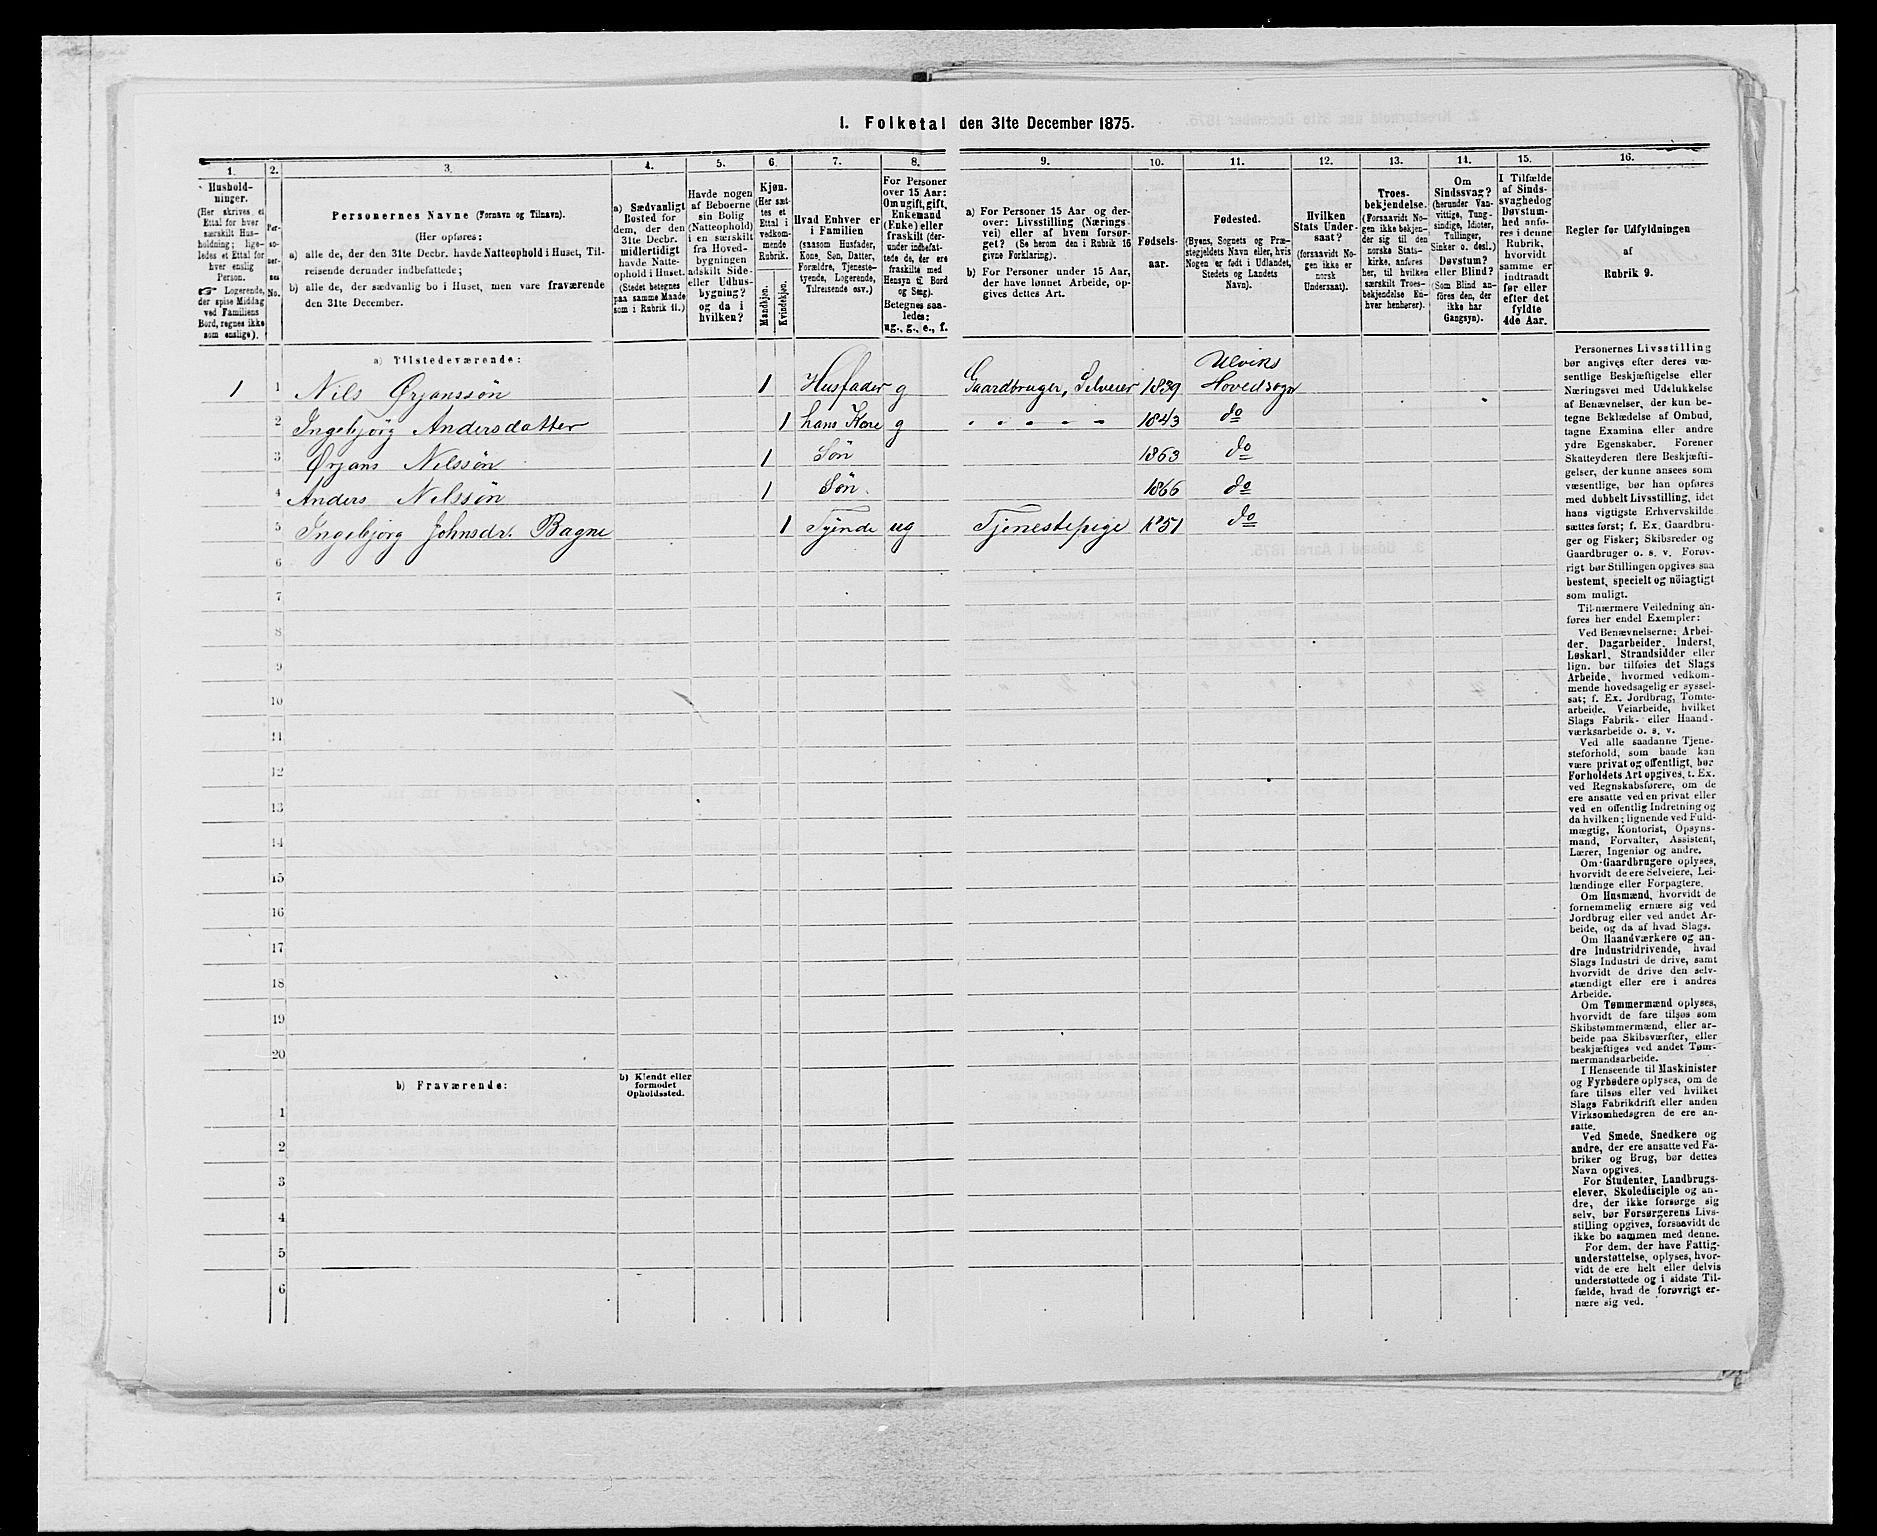 1. Folketal den 31te December 1875.
1. 2. 3. 4. 5. 6. 7. 8. 9. 10. 11. 12. 13. 14. 15. 16.
Hushold-
ninger.
(Her skrives et
Ettal for hver
særskilt Hus-
holdning; lige-
ledes et Ettal for
hver enslig
Person.
☞ Logerende,
der spise Middag
ved Familiens
Bord, regnes ikke
som enslige).
Per-
so-
ner-
nes
No.
Personernes Navne (Fornavn og Tilnavn).
(Her opføres:
a) alle de, der den 31te Decbr. havde Natteophold i Huset, Til-
reisende derunder indbefattede;
b) alle de, der sædvanlig bo i Huset, men vare fraværende
den 31te December.
a) Sædvanligt
Bosted for
dem, der den
31te Decbr.
midlertidigt
havde Natte-
ophold i Huset.
(Stedet betegnes
paa samme Maade
som i Rubrik 11.)
Havde nogen
af Beboerne
sin Bolig
(Natteophold)
i en særskilt
fra Hoved-
bygningen
adskilt Side-
eller Udhus-
bygning?
og da i
hvilken?
Kjøn.
(Her sæt-
tes et
Ettal i
vedkom-
mende
Rubrik.
Mandkjøn.
Kvindekjøn.
Hvad Enhver er
i Familien
(saasom Husfader,
Kone, Søn, Datter,
Forældre, Tjeneste-
tyende, Logerende,
Tilreisende osv.)
For Personer
over 15 Aar:
Om ugift, gift,
Enkemand
(Enke) eller
fraskilt (der-
under indbefat-
tede de, der ere
fraskilte med
Hensyn til Bord
og Sæng).
Betegnes saa-
ledes:
ug., g., e., f.
a) For Personer 15 Aar og der-
over: Livsstilling (Nærings-
vei) eller af hvem forsør-
get? (Se herom den i Rubrik 16
givne Forklaring).
b) For Personer under 15 Aar,
der have lønnet Arbeide, op-
gives dettes Art.
Fødsels-
aar.
Fødested.
(Byens, Sognets og Præ-
stegjeldets Navn eller, hvis
Nogen er født i Udlandet,
Stedets og Landets
Navn).
Hvilken
Stats Under-
saat?
(forsaavidt No-
gen ikke er
norsk
Undersaat).
Troes-
bekjendelse.
(Forsaavidt No-
gen ikke bekjen-
der sig til den
norske Stats-
kirke, anføres
her, til hvilken
særskilt Troes-
bekjendelse En-
hver henhører).
Om
Sindssvag?
(herunder Van-
vittige, Tung-
sindige, Idioter,
Tullinger,
Sinker o. desl.)
Døvstum?
eller Blind?
(Som Blind an-
føres den, der
ikke har
Gangsyn).
I Tilfælde
af Sinds-
svaghed og
Døvstum-
hed anfø-
res i denne
Rubrik,
hvorvidt
samme er
indtraadt
før eller
efter det
fyldte
4de Aar.
Regler for Udfyldningen
af
Rubrik 9.
a) Tilstedeværende:
Ulviks
1 1 Nils Ørjanssøn 1 Husfader g Gaardbruger, Selveier 1839 Hovedsogn
2 Ingebjörg Andersdatter 1 hans Kone g " " " " " 1843 do
3 Ørjans Nilssøn 1 Søn 1863 do
4 Anders Nilssøn 1 Søn. 1866 do
5 Ingebjörg Johnsdr. Bagne 1 Tyende ug Tjenestepige 1851 do
6
7
8
9
10
11
12
13
14
15
16
17
18
19
20
b) Fraværende: b) Kjendt eller
formodet
Opholdssted.
1
2
3
4
5
6
Personernes Livsstilling
bør angives efter deres væ-
sentlige Beskjæftigelse eller
Næringsvei med Udelukkelse
af Benævnelser, der kun be-
tegne Beklædelse af Ombud,
tagne Examina eller andre
ydre Egenskaber. Forener
Skatteyderen flere Beskjæfti-
gelser, der kunne ansees som
væsentlige, bør han opføres
med dobbelt Livsstilling, idet
hans vigtigste Erhvervskilde
sættes først; f. Ex. Gaardbru-
ger og Fisker; Skibsreder og
Gaardbruger o. s. v. Forøv-
rigt bør Stillingen opgives saa
bestemt, specielt og nöiagtigt
som muligt.
Til nærmere Veiledning an-
føres her endel Exempler:
Ved Benævnelserne: Arbei-
der, Dagarbeider, Inderst,
Løskarl, Strandsidder eller
lign. bør tilføies det Slags
Arbeide, hvormed vedkom-
mende hovedsagelig er syssel-
sat; f. Ex. Jordbrug, Tomte-
arbeide, Veiarbeide, hvilket
Slags Fabrik- eller Haand-
værksarbeide o. s. v.
Ved alle saadanne Tjene-
steforhold, som baade kan
være privat og offentligt, bør
Forholdets Art opgives, t. Ex.
ved Regnskabsførere, om de
ere ansatte ved en privat eller
ved en offentlig Indretning og
da hvilken; lignende ved Fuld-
mægtig, Kontorist, Opsyns-
mand, Forvalter, Assistent,
Lærer, Ingeniør og andre.
Om Gaardbrugere oplyses,
hvorvidt de ere Selveiere, Lei-
lændinge eller Forpagtere.
Om Husmænd, hvorvidt de
fornemmelig ernære sig ved
Jordbrug eller ved andet Ar-
beide, og da af hvad Slags.
Om Haandværkere og an-
dre Industridrivende, hvad
Slags Industri de drive, samt
hvorvidt de drive den selv-
stændigt eller ere i andres
Arbeide.
Om Tømmermænd oplyses,
hvorvidt de fare tilsøs som
Skibstømmermænd, eller ar-
beide paa Skibsværfter, eller
beskjæftiges ved andet Tøm-
mermandsarbeide.
I Henseende til Maskinister
og Fyrbødere oplyses, om de
fare tilsøs eller ved hvilket
Slags Fabrikdrift eller anden
Virksomhedsgren de ere an-
satte.
Ved Smede, Snedkere og
andre, der ere ansatte ved Fa-
briker og Brug, bør dettes
Navn opgives.
For Studenter, Landbrugs-
elever, Skoledisciple og an-
dre, der ikke forsørge sig
selv, bør Forsørgerens Livs-
stilling opgives, forsaavidt de
ikke bo sammen med denne.
For dem, der have Fattig-
understøttelse, oplyses, hvor-
vidt de ere helt eller delvis
understøttede og i sidste Til-
fælde, hvad de forøvrigt er-
nære sig ved.